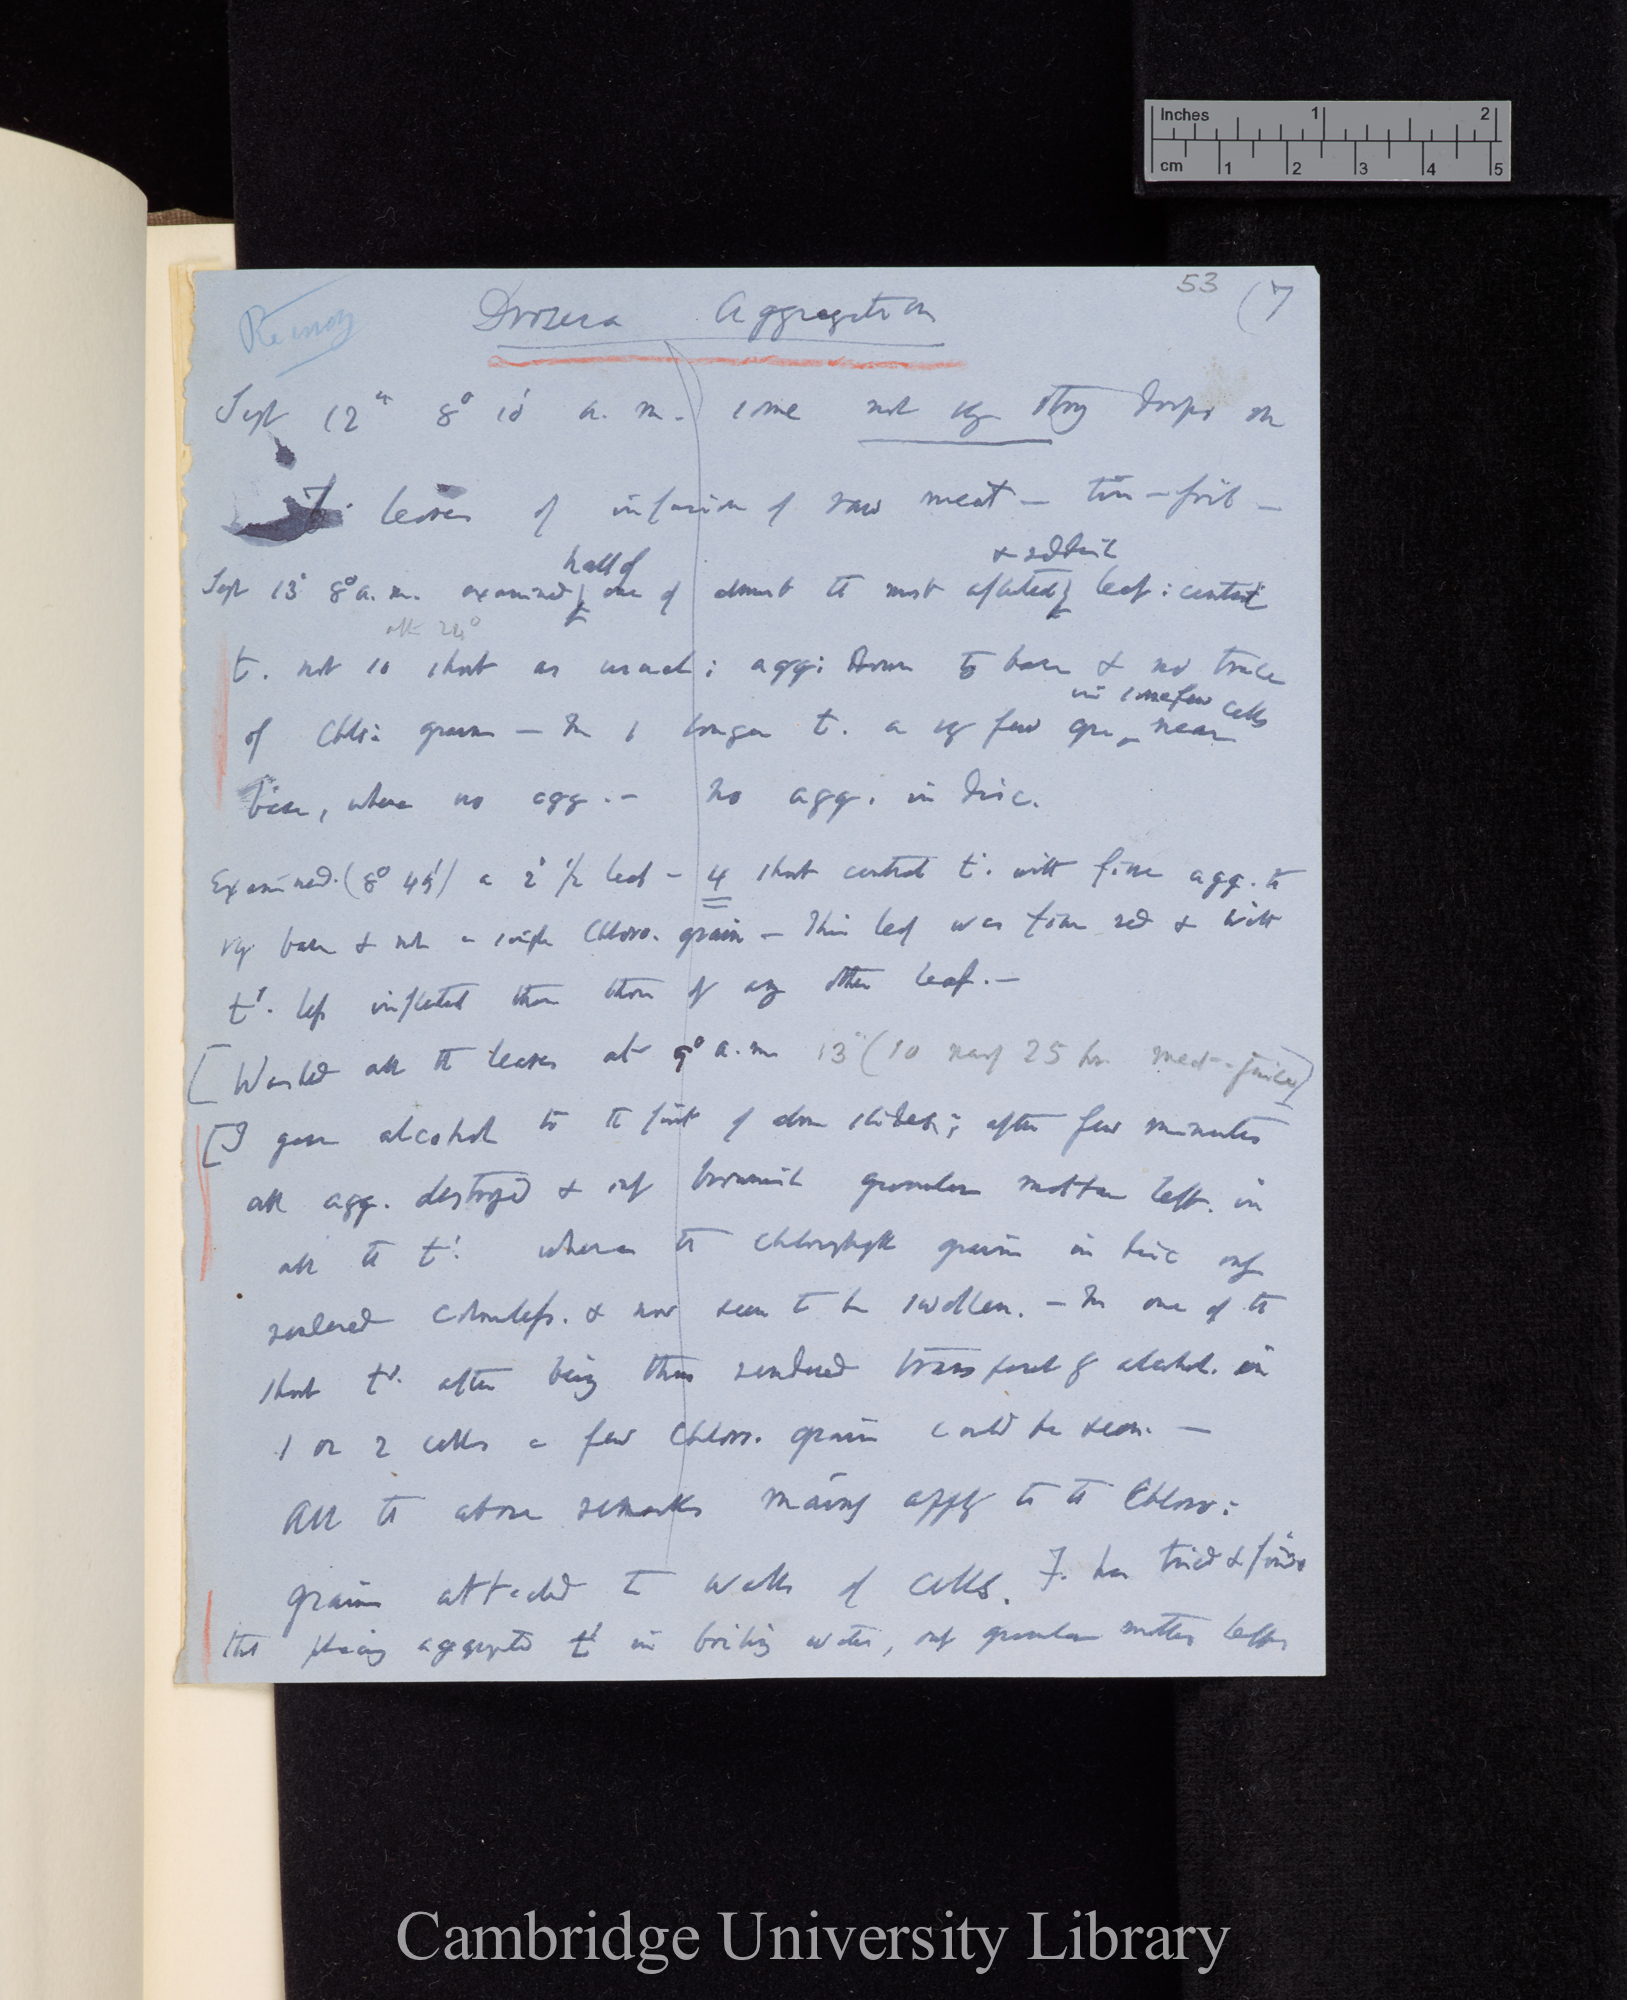 Inches 1 2
cm 1 2 3 4 5
53 (7
Drosera Aggregation
Sept 12th 8° 10' a.m. some not vy strong drops on
7. leaves of infusion of raw meat — tin-foil —
half of & reddish
Sept 13' 8° a.m. examined one of almost the most affected leaf: central
after 24°
t. not so short as usual; agg: down to base & no trace
in some few cells
of Chlo: grains — In 1 longer t. a vy few gr. near
base, where no agg.— No agg. in disc.
Examined. (8° 45') a 2d 1/2 leaf — 4 short central t'. with fine agg. to
vy base & not a single Chloro. grain — This leaf was fine red & with
t'. less inflected than those of any other leaf.—
[Washed all the leaves at 9° a.m. 13th (so nearly 25 hrs meat-juice)
[I gave alcohol to the first of above slides; after few minutes
all agg. destroyed & only brownish granular matter left. in
all the t'. whereas the chlorophyll grains in disc only
rendered colourless. & now seem to be swollen. — In one of the
short t's. after being thus rendered transparent by alcohol. in
1 or 2 cells a few Chloro. grains could be seen. —
All the above remarks mainly apply to the Chloro:
grains attached to walls of cells. F. has tried & finds
that placing aggregated t' in boiling water, only granular matter left
Cambridge University Library